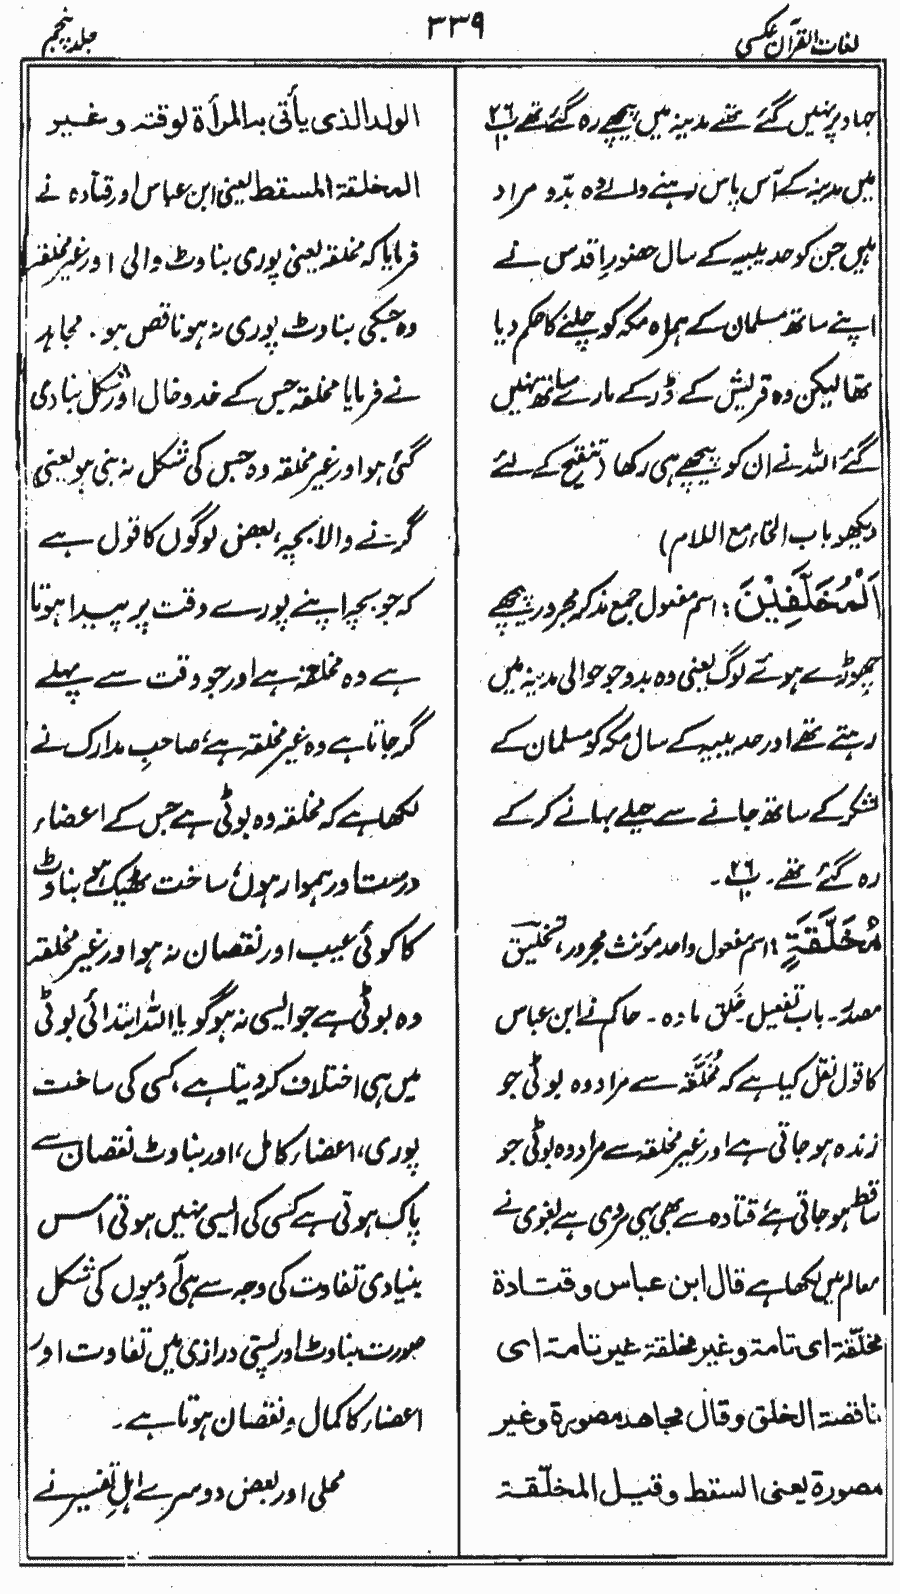 لغات القرآن عکسی
۳۳۹
جلد پنجم
جہاد پر نہیں گئے تھے مدینہ میں پیچھے رہ گئے تھے پ ۲۶
میں مدینہ کے آس پاس رہنے والے وہ بدّو مراد
ہیں جن کو حدیبیہ کے سال حضورِ اقدس نے
اپنے ساتھ مسلمان کے ہمراہ مکہ کو چلنے کا حکم دیا
تھا لیکن وہ قریش کے ڈر کے مارے ساتھ نہیں
گئے اللہ نے ان کو پیچھے ہی رکھا (تنقیح کے لئے
دیکھو باب الخاء مع اللام)
اَلْمُخَلَّفِيْنَ : اسم مفعول جمع مذکر مجرور پیچھے
چھوڑے ہوئے لوگ یعنی وہ بدو جو حوالی مدینہ میں
رہتے تھے اور حدیبیہ کے سال مکہ کو مسلمان کے
لشکر کے ساتھ جانے سے حیلے بہانے کر کے
رہ گئے تھے۔ پ ۲۶ ۔
مُخَلَّقَةٍ ؛ اسم مفعول واحد مؤنث مجرور، تخلیق
مصدر۔ باب تفعیل۔ خلق مادہ۔ حاکم نے ابن عباس
کا قول نقل کیا ہے کہ مُخَلَّقَہ سے مراد وہ بوٹی جو
زندہ ہو جاتی ہے اور غیر مخلقہ سے مراد وہ بوٹی جو
ساقط ہو جاتی ہے قتادہ سے بھی یہی مروی ہے بغوی نے
معالم میں لکھا ہے قال ابن عباس و قتادة
مخلّقة ای تامة و غیر مخلقة غیر تامة ای
ناقصة الخلق و قال مجاهد مصورة و غیر
مصورة یعنی السقط و قیل المخلّقة
الولد الذی یأتی به المرأة لوقته و غیر
المخلقة المسقط یعنی ابن عباس اور قتادہ نے
فرمایا کہ مخلقہ یعنی پوری بناوٹ والی اور غیر مخلقہ
وہ جسکی بناوٹ پوری نہ ہو ناقص ہو۔ مجاہد
نے فرمایا مخلقہ جس کے خدوخال اور شکل بنا دی
گئی ہو اور غیر مخلقہ وہ جس کی شکل نہ بنی ہو یعنی
گرنے والا بچہ، بعض لوگوں کا قول ہے
کہ جو بچہ اپنے پورے وقت پر پیدا ہوتا
ہے وہ مخلقہ ہے اور جو وقت سے پہلے
گر جاتا ہے وہ غیر مخلقہ ہے، صاحبِ مدارک نے
لکھا ہے کہ مخلقہ وہ بوٹی ہے جس کے اعضاء
درست اور ہموار ہوں، ساخت ٹھیک ہو بناوٹ
کا کوئی عیب اور نقصان نہ ہو اور غیر مخلقہ
وہ بوٹی ہے جو ایسی نہ ہو گویا اللہ ابتدائی بوٹی
میں ہی اختلاف کر دیتا ہے، کسی کی ساخت
پوری، اعضاء کامل، اور بناوٹ نقصان سے
پاک ہوتی ہے کسی کی ایسی نہیں ہوتی اس
بنیادی تفاوت کی وجہ سے ہی آدمیوں کی شکل
صورت بناوٹ اور پستی درازی میں تفاوت اور
اعضاء کا کمال و نقصان ہوتا ہے۔
محلی اور بعض دوسرے اہلِ تفسیر نے